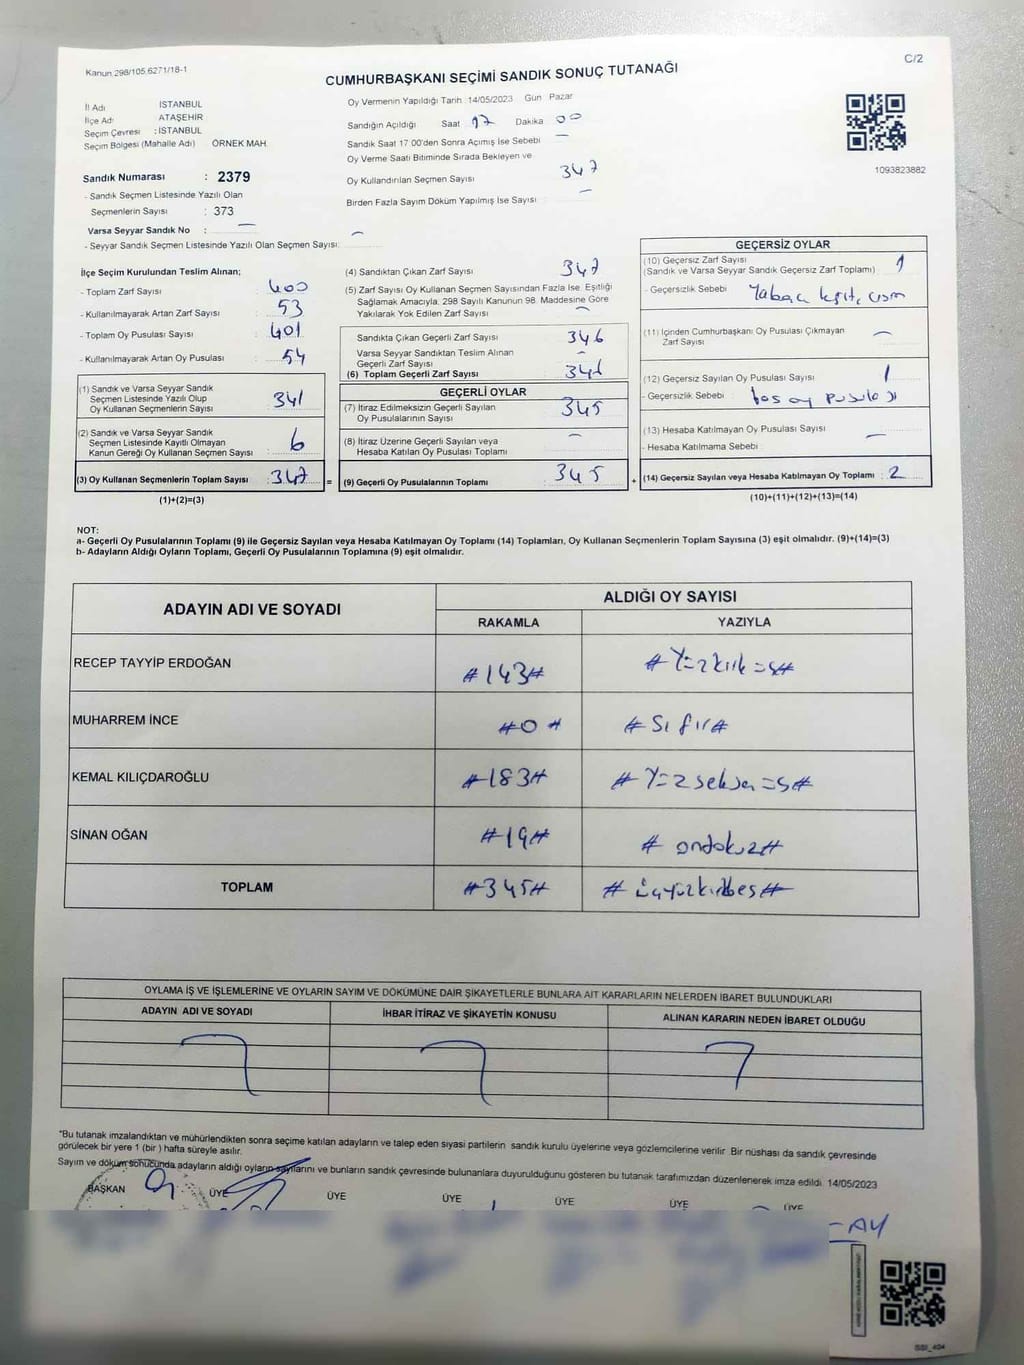 Kanun 298/105,6271/18-1
C/2
CUMHURBAŞKANI SEÇİMİ SANDIK SONUÇ TUTANAĞI
İl Adı İSTANBUL
İlçe Adı ATAŞEHİR
Seçim Çevresi : İSTANBUL
Seçim Bölgesi (Mahalle Adı) ÖRNEK MAH.
Sandık Numarası : 2379
- Sandık Seçmen Listesinde Yazılı Olan
Seçmenlerin Sayısı : 373
Varsa Seyyar Sandık No : —
- Seyyar Sandık Seçmen Listesinde Yazılı Olan Seçmen Sayısı: —
Oy Vermenin Yapıldığı Tarih :14/05/2023 Gün Pazar
Sandığın Açıldığı Saat 17 Dakika 00
Sandık Saat 17:00'den Sonra Açılmış İse Sebebi —
Oy Verme Saati Bitiminde Sırada Bekleyen ve
Oy Kullandırılan Seçmen Sayısı 347
Birden Fazla Sayım Döküm Yapılmış İse Sayısı —
1093823882
İlçe Seçim Kurulundan Teslim Alınan;
- Toplam Zarf Sayısı : 400
- Kullanılmayarak Artan Zarf Sayısı : 53
- Toplam Oy Pusulası Sayısı : 401
- Kullanılmayarak Artan Oy Pusulası : 54
(1) Sandık ve Varsa Seyyar Sandık
Seçmen Listesinde Yazılı Olup
Oy Kullanan Seçmenlerin Sayısı : 341
(2) Sandık ve Varsa Seyyar Sandık
Seçmen Listesinde Kayıtlı Olmayan
Kanun Gereği Oy Kullanan Seçmen Sayısı : 6
(3) Oy Kullanan Seçmenlerin Toplam Sayısı : 347 =
(1)+(2)=(3)
(4) Sandıktan Çıkan Zarf Sayısı : 347
(5) Zarf Sayısı Oy Kullanan Seçmen Sayısından Fazla İse, Eşitliği
Sağlamak Amacıyla, 298 Sayılı Kanunun 98. Maddesine Göre
Yakılarak Yok Edilen Zarf Sayısı : —
Sandıkta Çıkan Geçerli Zarf Sayısı : 346
Varsa Seyyar Sandıktan Teslim Alınan
Geçerli Zarf Sayısı : —
(6) Toplam Geçerli Zarf Sayısı : 346
GEÇERLİ OYLAR
(7) İtiraz Edilmeksizin Geçerli Sayılan
Oy Pusulalarının Sayısı : 345
(8) İtiraz Üzerine Geçerli Sayılan veya
Hesaba Katılan Oy Pusulası Toplamı : —
(9) Geçerli Oy Pusulalarının Toplamı : 345 +
GEÇERSİZ OYLAR
(10) Geçersiz Zarf Sayısı
(Sandık ve Varsa Seyyar Sandık Geçersiz Zarf Toplamı) : 1
- Geçersizlik Sebebi : Yabancı
(11) İçinden Cumhurbaşkanı Oy Pusulası Çıkmayan
Zarf Sayısı : —
(12) Geçersiz Sayılan Oy Pusulası Sayısı : 1
- Geçersizlik Sebebi : boş oy pusulası
(13) Hesaba Katılmayan Oy Pusulası Sayısı : —
- Hesaba Katılmama Sebebi :
(14) Geçersiz Sayılan veya Hesaba Katılmayan Oy Toplamı : 2
(10)+(11)+(12)+(13)=(14)
NOT:
a- Geçerli Oy Pusulalarının Toplamı (9) ile Geçersiz Sayılan veya Hesaba Katılmayan Oy Toplamı (14) Toplamları, Oy Kullanan Seçmenlerin Toplam Sayısına (3) eşit olmalıdır. (9)+(14)=(3)
b- Adayların Aldığı Oyların Toplamı, Geçerli Oy Pusulalarının Toplamına (9) eşit olmalıdır.
ADAYIN ADI VE SOYADI
ALDIĞI OY SAYISI
RAKAMLA YAZIYLA
RECEP TAYYİP ERDOĞAN #143# #Yüzkırküç#
MUHARREM İNCE #0# #Sıfır#
KEMAL KILIÇDAROĞLU #183# #Yüzseksenüç#
SİNAN OĞAN #19# #ondokuz#
TOPLAM #345# #üçyüzkırkbeş#
OYLAMA İŞ VE İŞLEMLERİNE VE OYLARIN SAYIM VE DÖKÜMÜNE DAİR ŞİKAYETLERLE BUNLARA AİT KARARLARIN NELERDEN İBARET BULUNDUKLARI
ADAYIN ADI VE SOYADI İHBAR İTİRAZ VE ŞİKAYETİN KONUSU ALINAN KARARIN NEDEN İBARET OLDUĞU
*Bu tutanak imzalandıktan ve mühürlendikten sonra seçime katılan adayların ve talep eden siyasi partilerin sandık kurulu üyelerine veya gözlemcilerine verilir. Bir nüshası da sandık çevresinde
görülecek bir yere 1 (bir) hafta süreyle asılır.
Sayım ve döküm sonucunda adayların aldığı oyların sayılarını ve bunların sandık çevresinde bulunanlara duyurulduğunu gösteren bu tutanak tarafımızdan düzenlenerek imza edildi. 14/05/2023
BAŞKAN ÜYE ÜYE ÜYE ÜYE ÜYE ÜYE